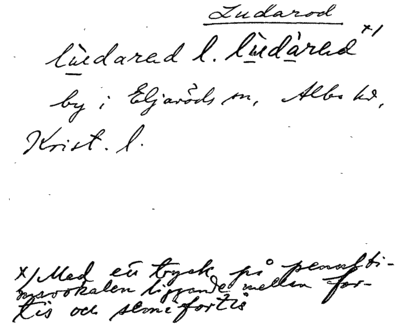 Ludarod
lùdarad l. lùdàrad x/
by i Eljaröds sn, Albo hd,
Krist. l.
x/ Med en tryck på penulti-
mavokalen liggande mellan for-
tis och semifortis